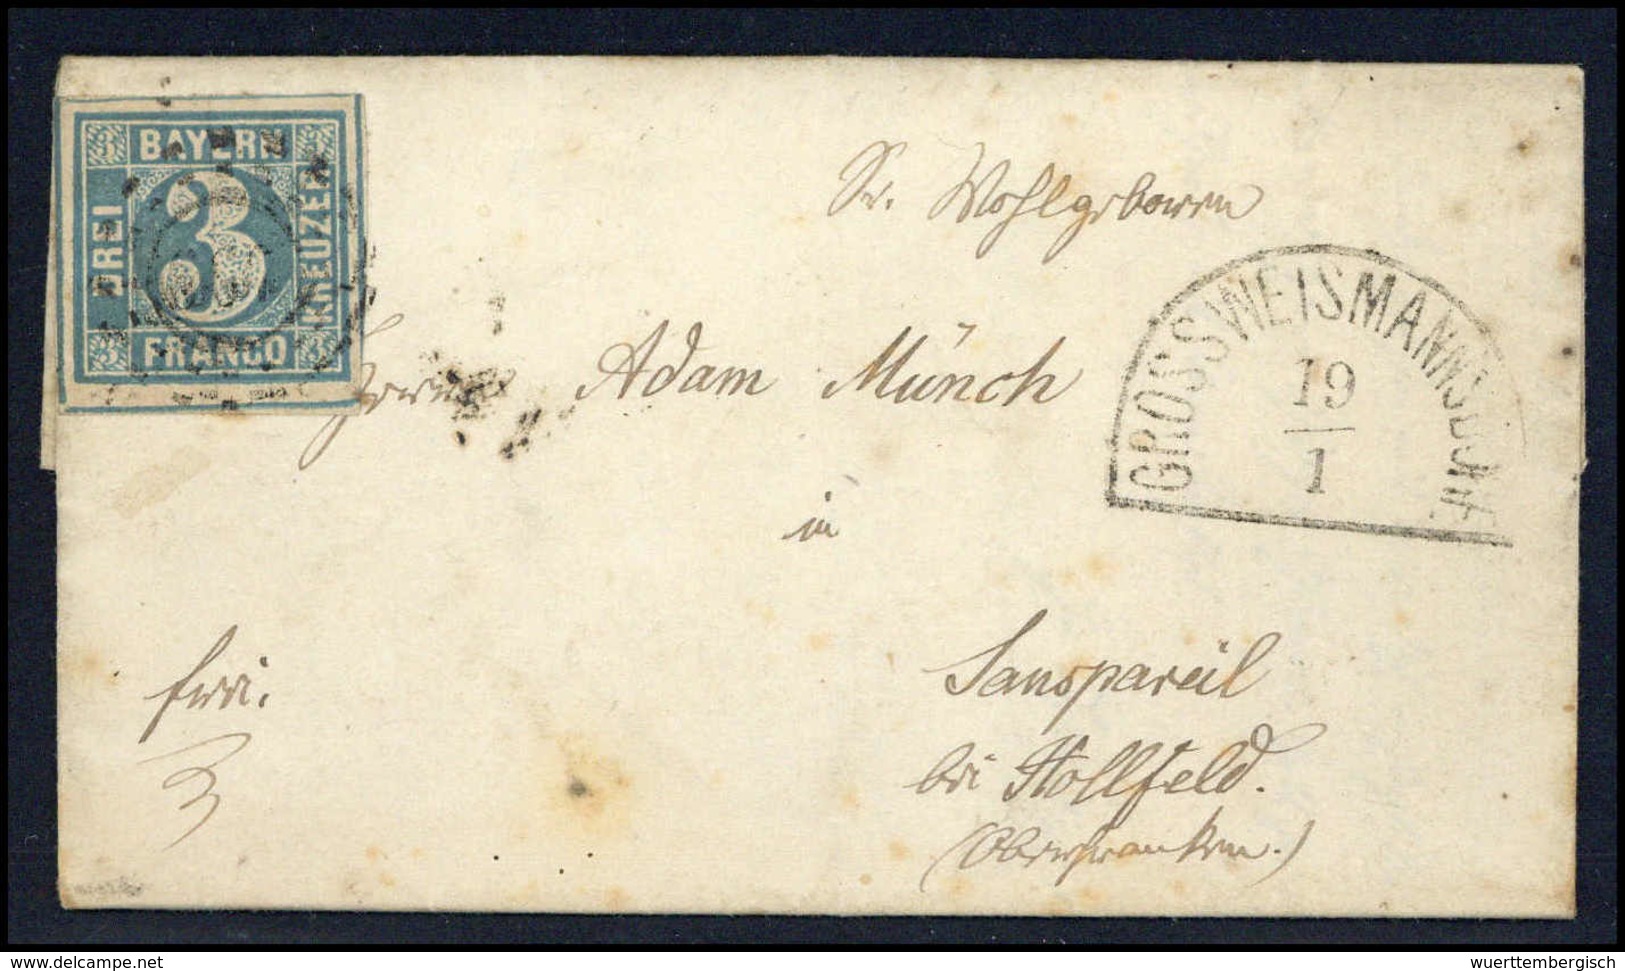 3 BAYERN 3
DREI
3
KREUZER
3 FRANCO 3
Sr. Wohlgeboren
Herrn Adam Münch
in
GROSSWEISMANNSDORF
19
1
Sanspareil
bei Hollfeld.
(Oberfranken.)
frei.
3
www.delcampe.net
wuerttembergisch